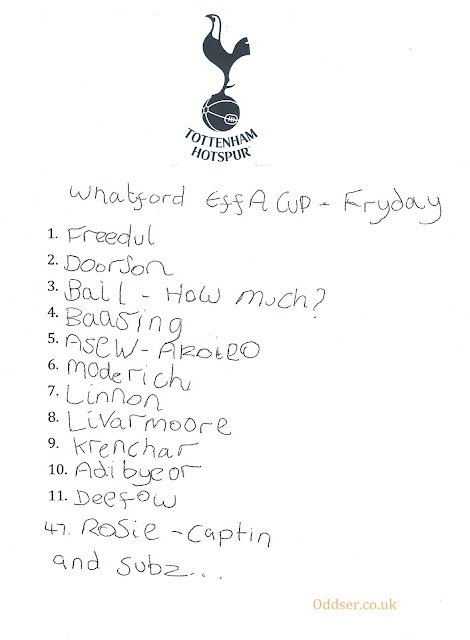 TOTTENHAM
HOTSPUR
Whatford Eff A Cup - Fryday
1. Freedul
2. Doorson
3. Bail - How much?
4. Baasing
5. Asew - Akoteo
6. Moderich
7. Linnon
8. Livarmoore
9. Krenchar
10. Adibyeor
11. Deefow
47. Rosie - Captin
and subz...
Oddser.co.uk